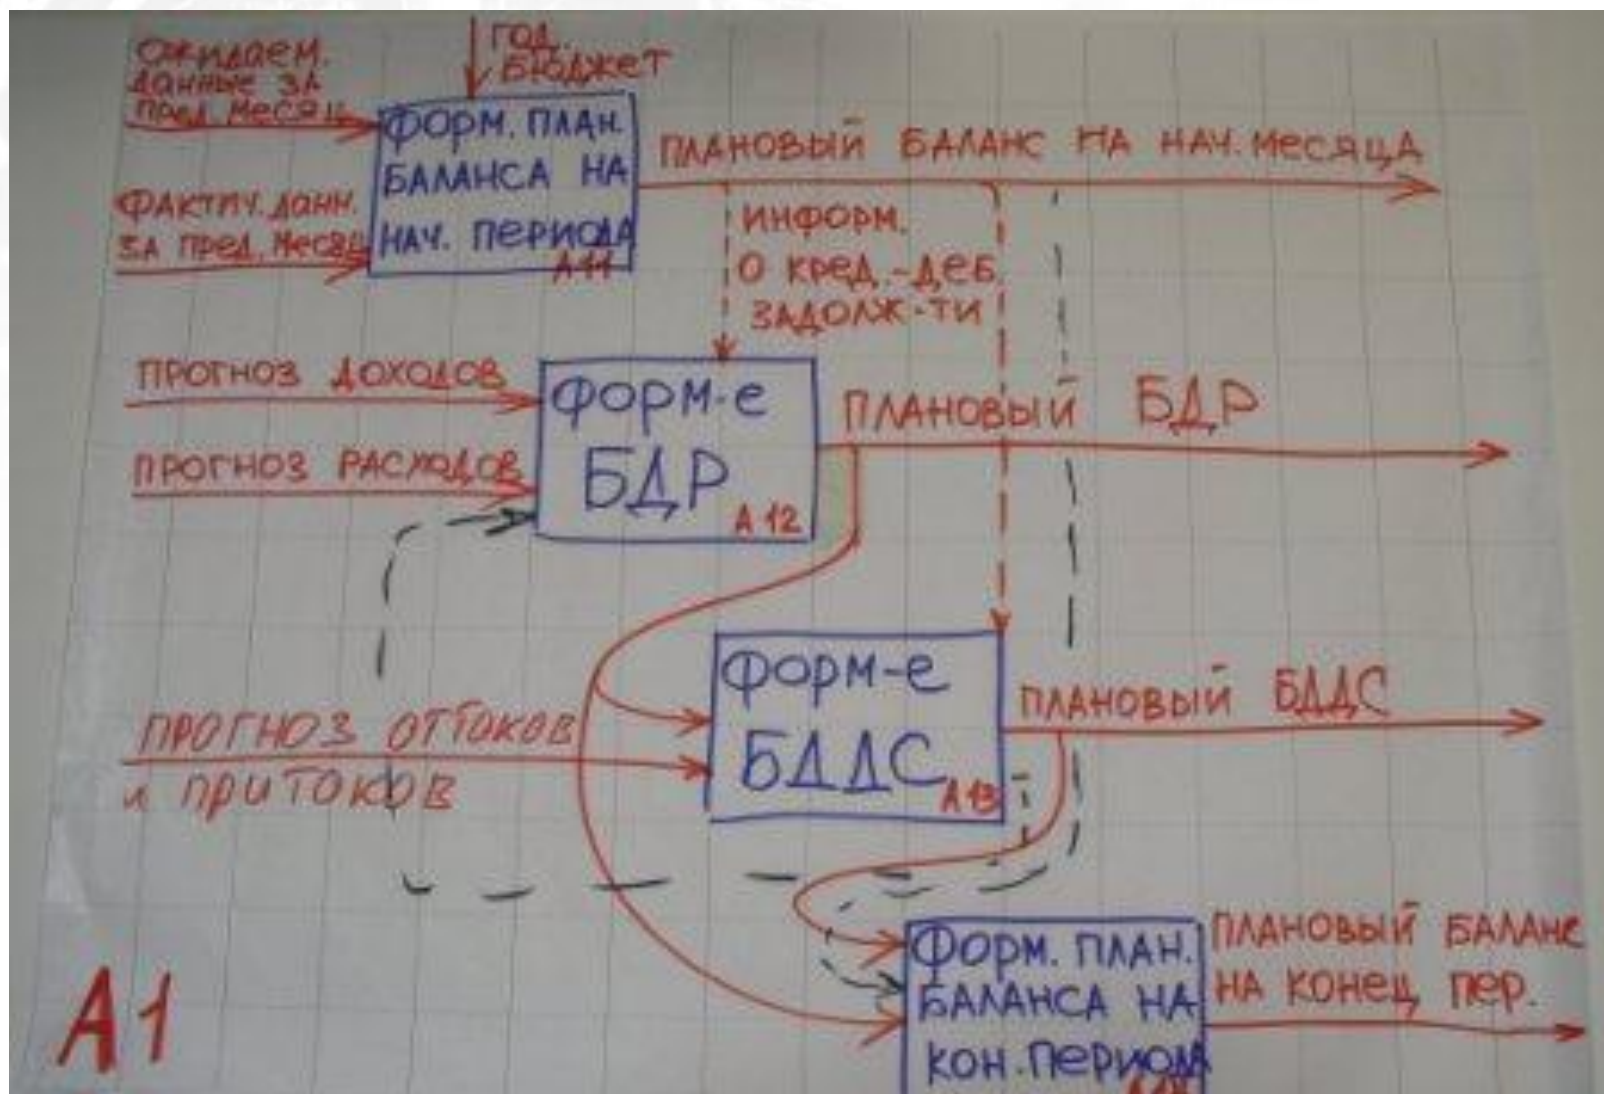 ОЖИДАЕМ.
ДАННЫЕ ЗА
ПРЕД. МЕСЯЦ
ГОД.
БЮДЖЕТ
ФОРМ. ПЛАН.
БАЛАНСА НА
НАЧ. ПЕРИОДА
А11
ПЛАНОВЫЙ БАЛАНС НА НАЧ. МЕСЯЦА
ФАКТИЧ. ДАНН.
ЗА ПРЕД. МЕСЯЦ
ИНФОРМ.
О КРЕД.-ДЕБ.
ЗАДОЛЖ-ТИ
ПРОГНОЗ ДОХОДОВ
ПРОГНОЗ РАСХОДОВ
ФОРМ-Е
БДР
А12
ПЛАНОВЫЙ БДР
ПРОГНОЗ ОТТОКОВ
и ПРИТОКОВ
ФОРМ-Е
БДДС
А13
ПЛАНОВЫЙ БДДС
ФОРМ. ПЛАН.
БАЛАНСА НА
КОН. ПЕРИОДА
ПЛАНОВЫЙ БАЛАНС
НА КОНЕЦ ПЕР.
А1